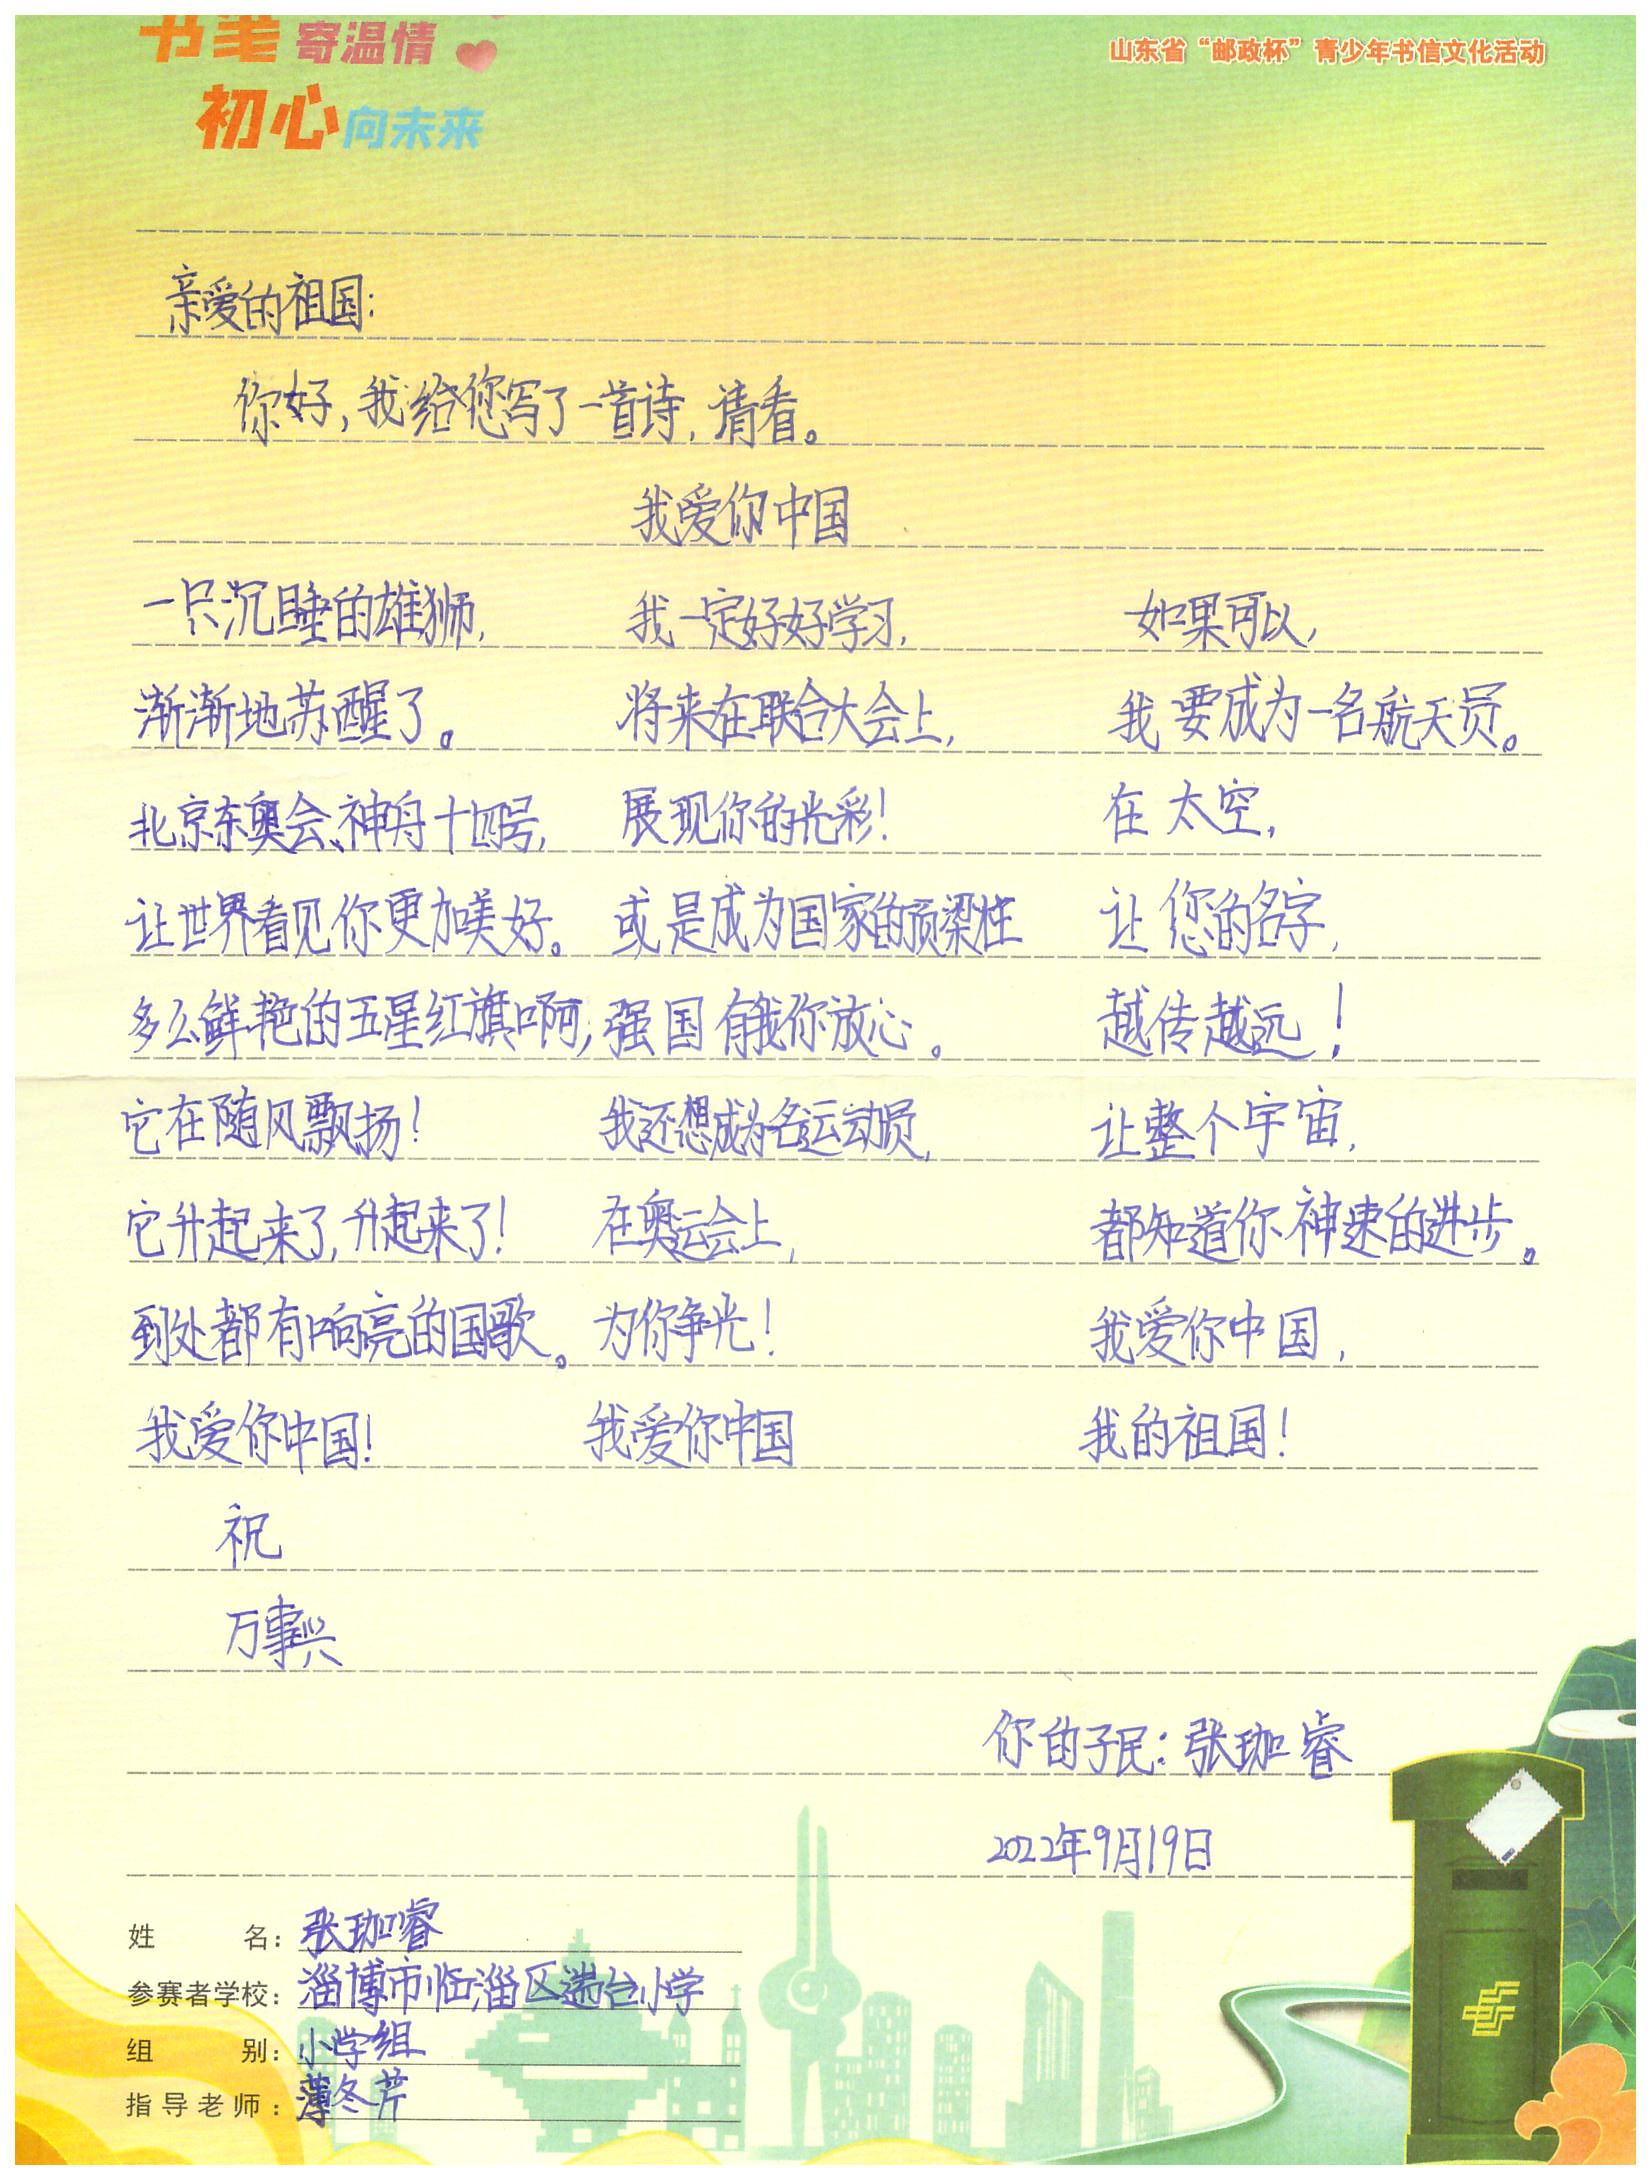 书笔寄温情
初心向未来
山东省“邮政杯”青少年书信文化活动
亲爱的祖国:
你好,我给您写了一首诗,请看。
我爱你中国
一只沉睡的雄狮,
渐渐地苏醒了。
北京东奥会、神舟十四号,
让世界看见你更加美好。
多么鲜艳的五星红旗啊,
它在随风飘扬!
它升起来了,升起来了!
到处都有响亮的国歌。
我爱你中国!
我一定好好学习,
将来在联合大会上,
展现你的光彩!
或是成为国家的顶梁柱
强国有我你放心。
我还想成为名运动员,
在奥运会上,
为你争光!
我爱你中国
如果可以,
我要成为一名航天员。
在太空,
让您的名字,
越传越远!
让整个宇宙,
都知道你神速的进步。
我爱你中国,
我的祖国!
祝
万事兴
你的子民:张珈睿
2022年9月19日
姓名:张珈睿
参赛者学校:淄博市临淄区遄台小学
组别:小学组
指导老师:薄冬芹